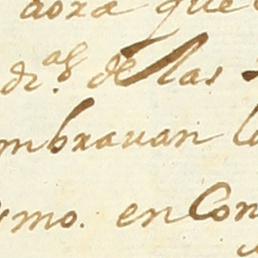 aora que
dr.as de las
mbrauan l
smo. en Con